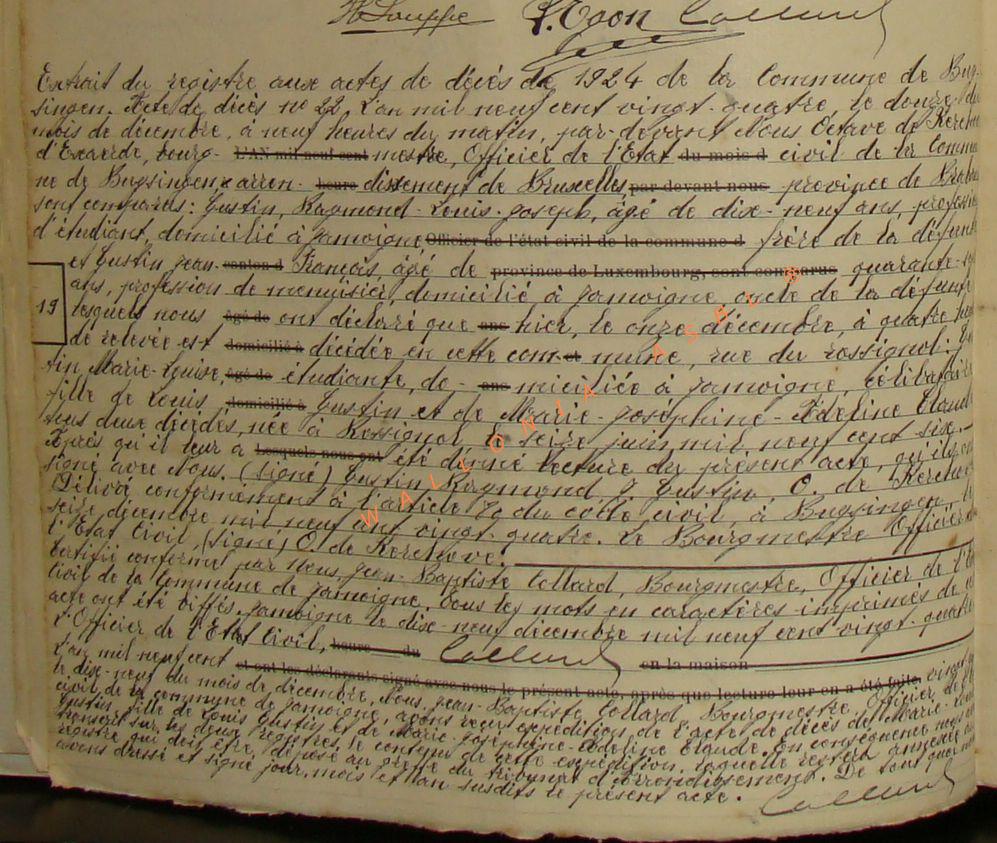 H. Souppe P. Egon Collard
Extrait du registre aux actes de décès de 1924 de la Commune de Buy-
singen. Acte de décès no 22. L'an mil neuf cent vingt-quatre, le douze du
mois de décembre, à neuf heures du matin, par-devant Nous Octave de Kerchove
d'Exaerde, bourg- L'AN mil neuf cent mestre, Officier de l'Etat du mois d civil de la Commu-
ne de Buysingen, arron- heure dissement de Bruxelles par devant nous province de Braba
sont comparus: Gustin, Raymond-Louis-Joseph, âgé de dix-neuf ans, profession
d'étudiant, domicilié à Jamoigne Officier de l'état civil de la commune d frère de la défunte
et Gustin Jean- canton d François, âgé de province de Luxembourg, sont comparus quarante-
ans, profession de menuisier, domicilié à Jamoigne, oncle de la défunte
19 lesquels nous âgé de ont déclaré que ans hier, le onze décembre, à quatre heu
de relevée est domicilié à décédée en cette com- et mune, rue du rossignol: Gus-
tin, Marie-Louise, âgé de étudiante, do- ans miciliée à Jamoigne, célibataire
fille de Louis domicilié à Gustin et de Marie-Joséphine-Adeline Claude
tous deux décédés, née à Rossignol, le seize juin mil neuf cent six.
Après qu'il leur a Lesquels nous ont été donné lecture du présent acte, qu'ils ont
signé avec Nous. (signé) Gustin Raymond, J. Gustin, O. de Kerchove
Délivré conformément à l'article 79 du code civil, à Buysingen, le
seize décembre mil neuf cent vingt-quatre. Le Bourgmestre Officier de
l'Etat Civil, (signé) O. de Kerchove.
Certifié conforme par Nous, Jean-Baptiste Collard, Bourgmestre, Officier de l'Etat
Civil de la Commune de Jamoigne. Tous les mots en caractères imprimés de cet
acte ont été biffés. Jamoigne le dix-neuf décembre mil neuf cent vingt-quatre
L'Officier de l'Etat Civil, heure du Collard en la maison
L'an mil neuf cent et ont les déclarants signé avec nous le présent acte, après que lecture leur en a été faite. vingt-qu
le dix-neuf du mois de décembre, Nous, Jean-Baptiste Collard, Bourgmestre, Officier de l'
civil de la commune de Jamoigne, avons reçu expédition de l'acte de décès de Marie-
Gustin, fille de Louis Gustin et de Marie-Joséphine-Adeline Claude. En conséquence nous av
transcrit sur les deux registres le contenu de cette expédition, laquelle restera annexée au
registre qui doit être déposé au greffe du tribunal d'Arrondissement. De tout quoi nous
avons dressé et signé jour, mois et an susdits le présent acte. Collard
WALLONIA ASBL